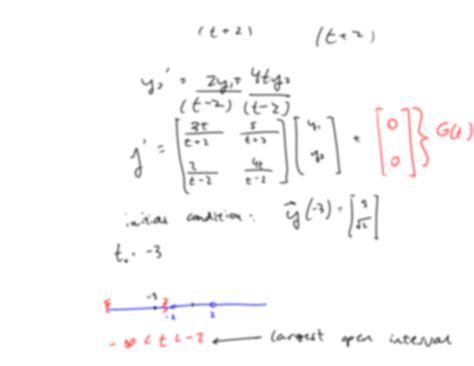 (t+2) (t+2)
y₂' = 2y₁+ 4ty₂
(t-2) (t-2)
y' = [3t/t+2 5/t+2; 2/t-2 4t/t-2] [y₁; y₂] + [0; 0] } G(t)
initial condition: y(-3) =
t₀ = -3
-3 -2 2
-∞ < t < -2 ← largest open interval